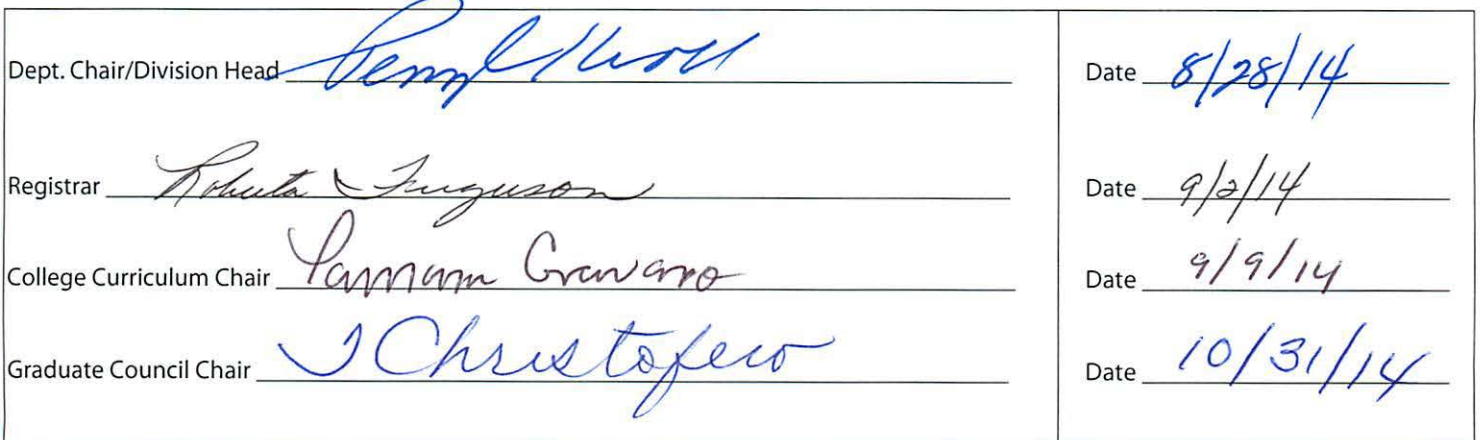 Dept. Chair/Division Head Date 8/28/14
Registrar Roberta Ferguson Date 9/2/14
College Curriculum Chair Date 9/9/14
Graduate Council Chair T Christofero Date 10/31/14